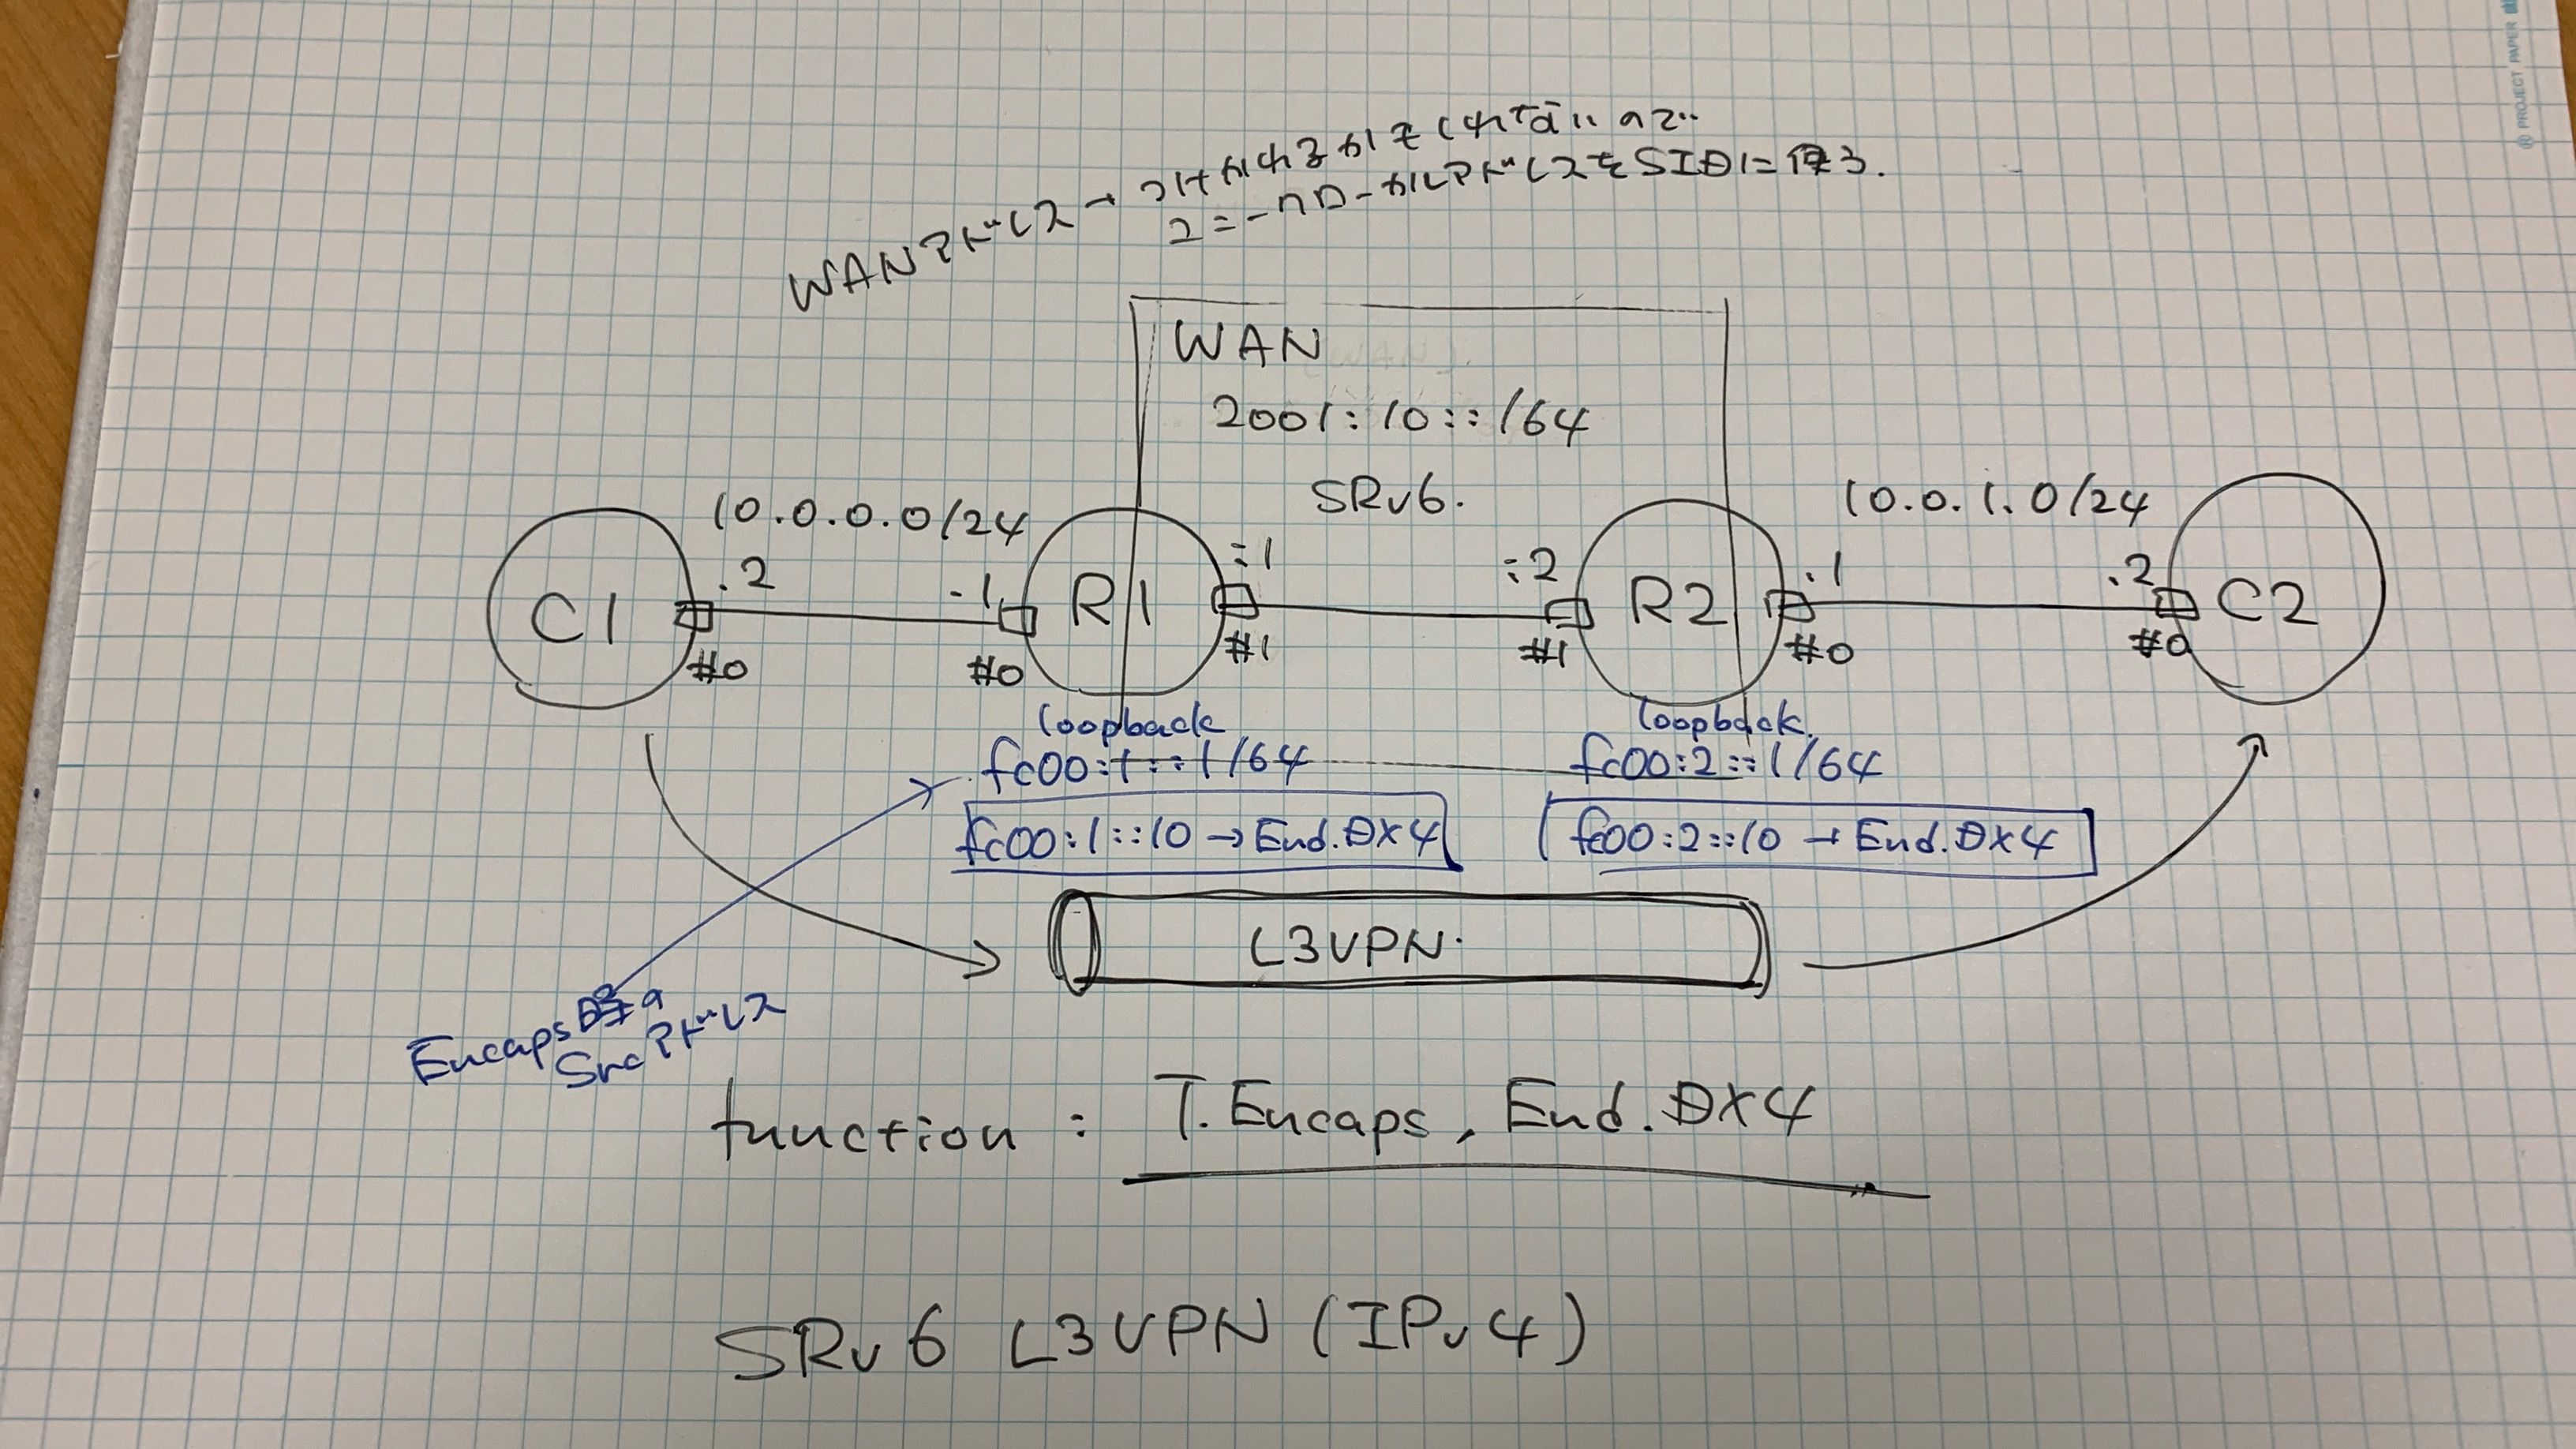 PROJECT PAPER
WANアドレス → つけかわるかもしれないので
ユニークローカルアドレスをSIDに使う.
WAN
2001:10::/64
SRv6.
10.0.0.0/24
10.0.1.0/24
C1
.2
#0
.1
#0
R1
:1
#1
:2
#1
R2
.1
#0
.2
#0
C2
loopback
fc00:1::1/64
fc00:1::10 → End.DX4
loopback
fc00:2::1/64
fc00:2::10 → End.DX4
L3VPN.
Encaps時の
Srcアドレス
function : T.Encaps, End.DX4
SRv6 L3VPN (IPv4)